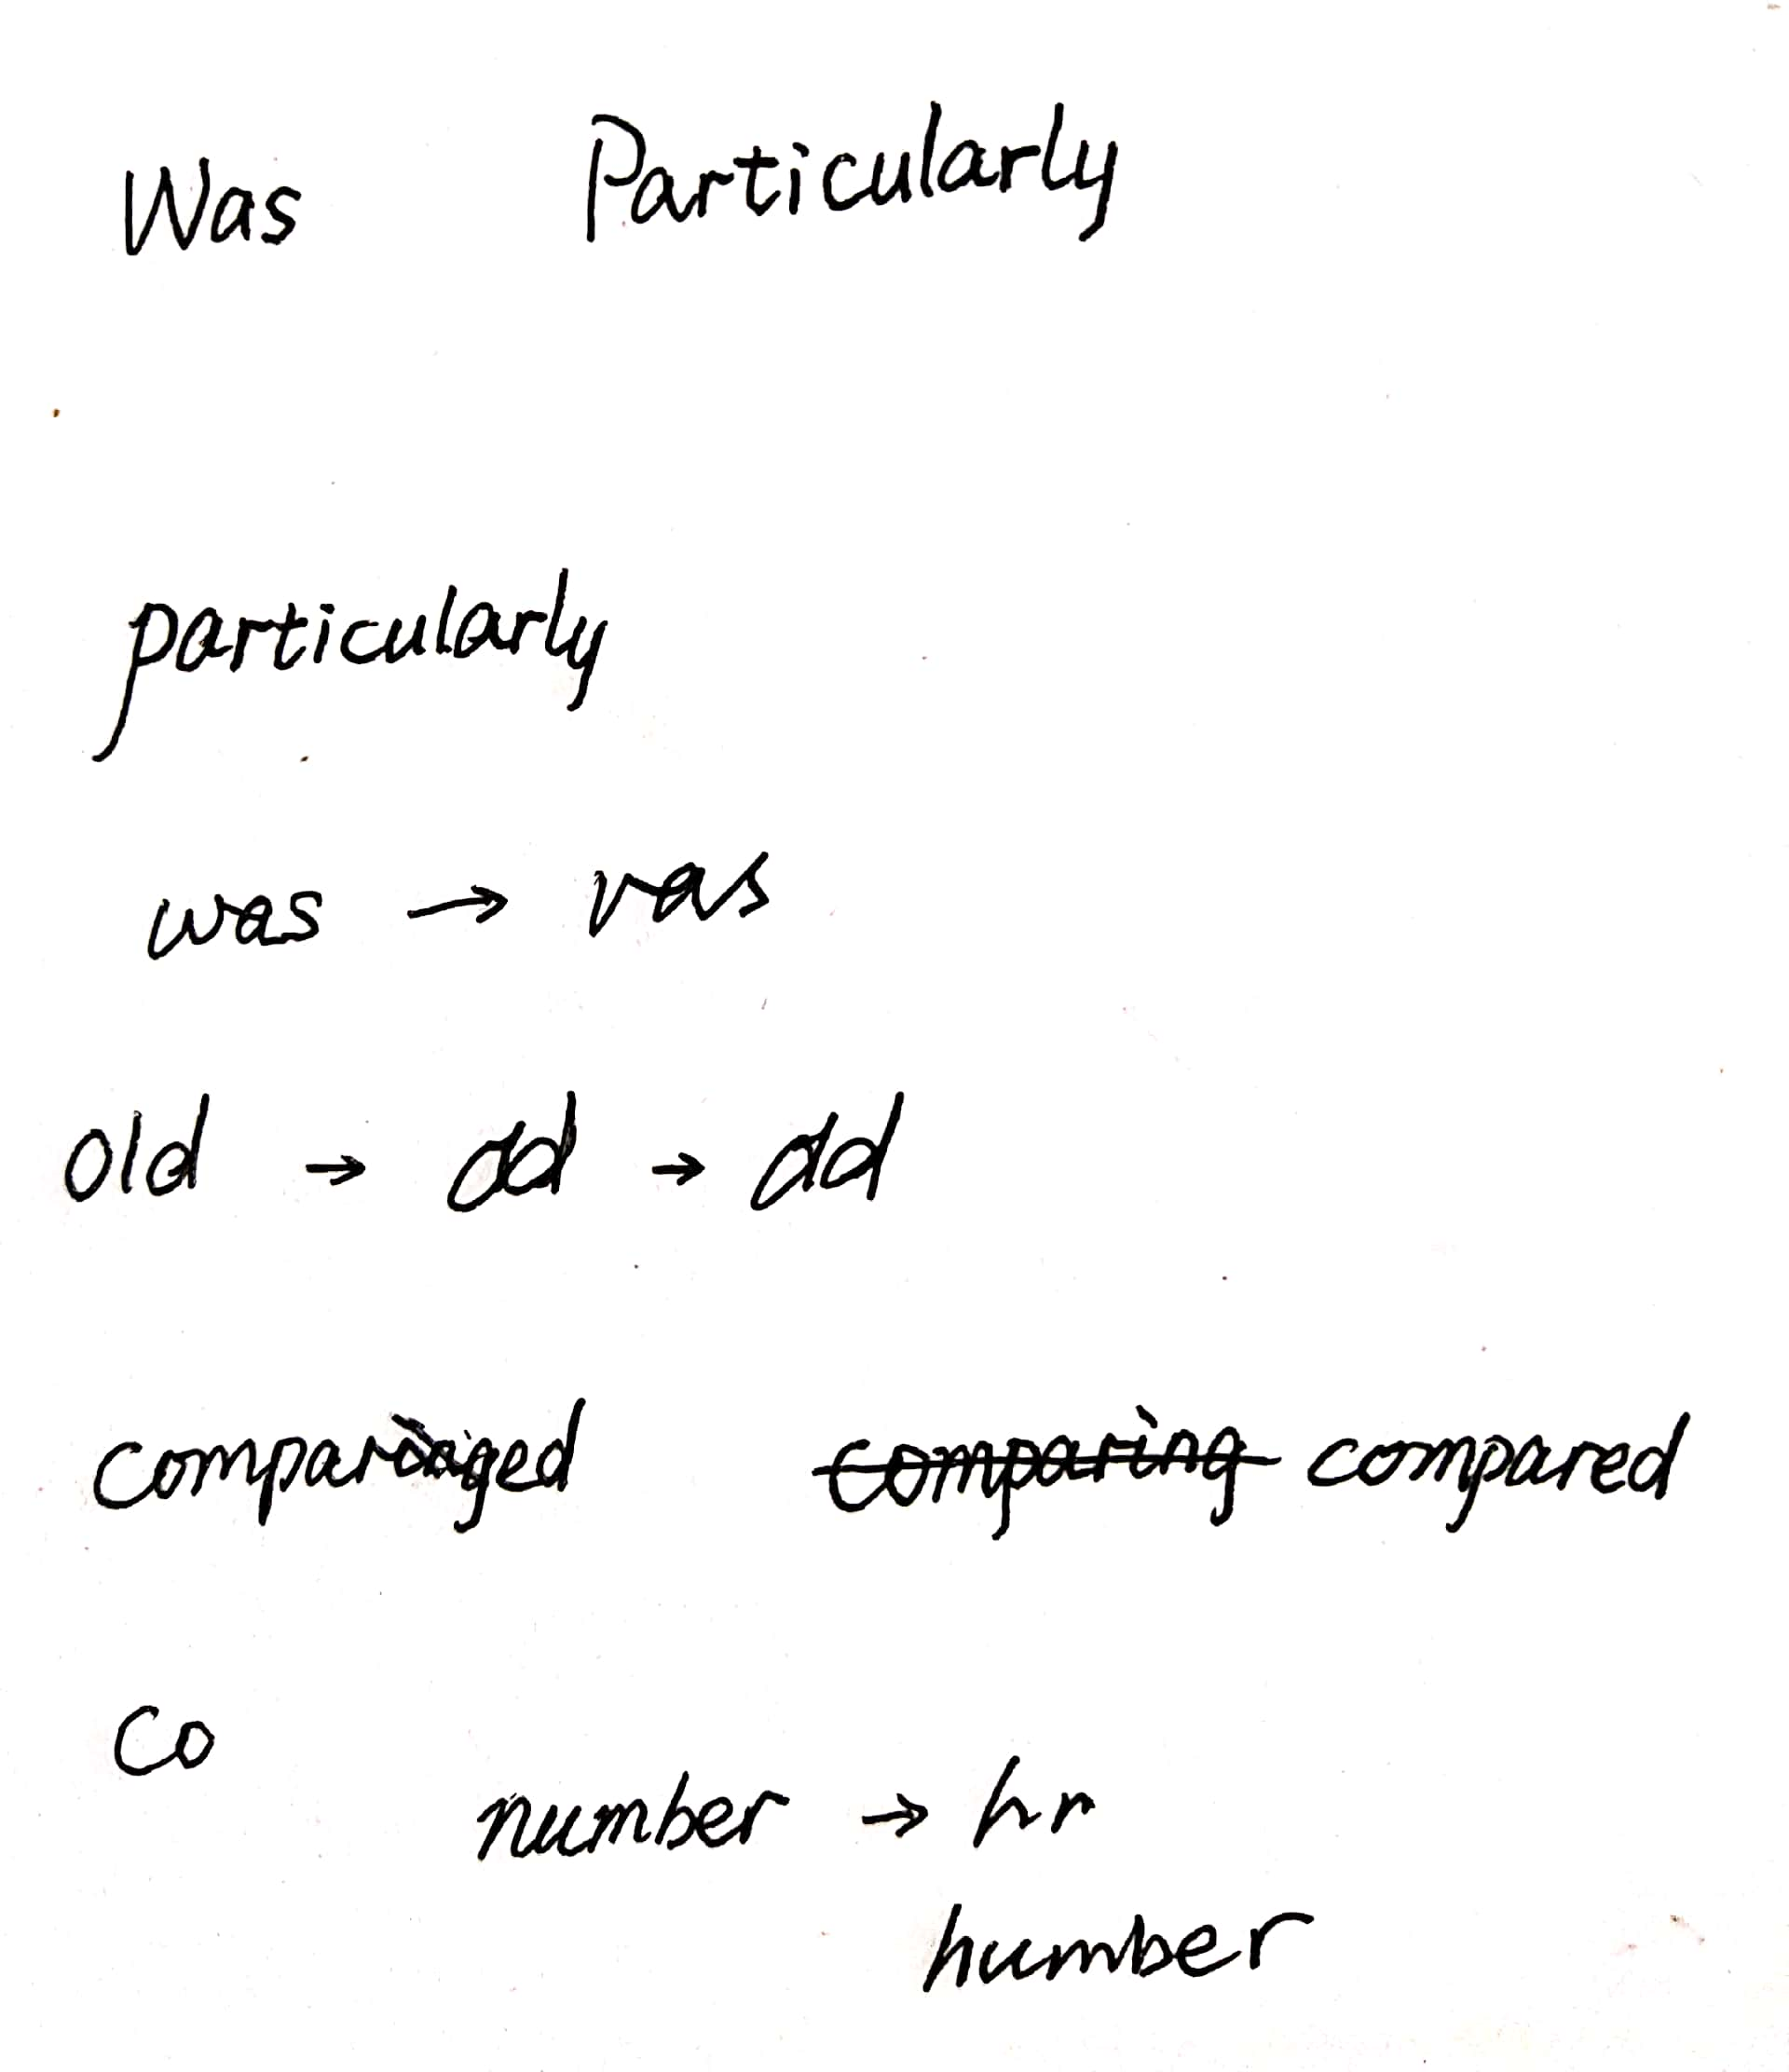 Was Particularly
particularly
was → vas
old → od → ad
compared comparing compared
Co
number → hr
humber